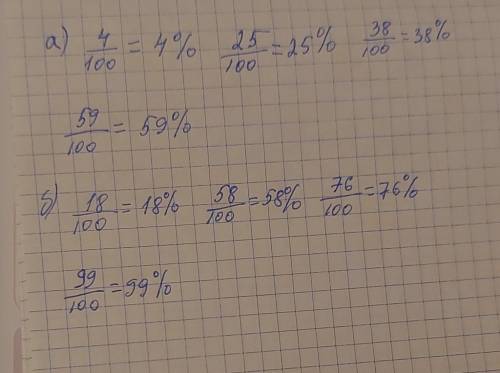 а) 4/100 = 4% 25/100 = 25% 38/100 = 38%
59/100 = 59%
б) 18/100 = 18% 58/100 = 58% 76/100 = 76%
99/100 = 99%